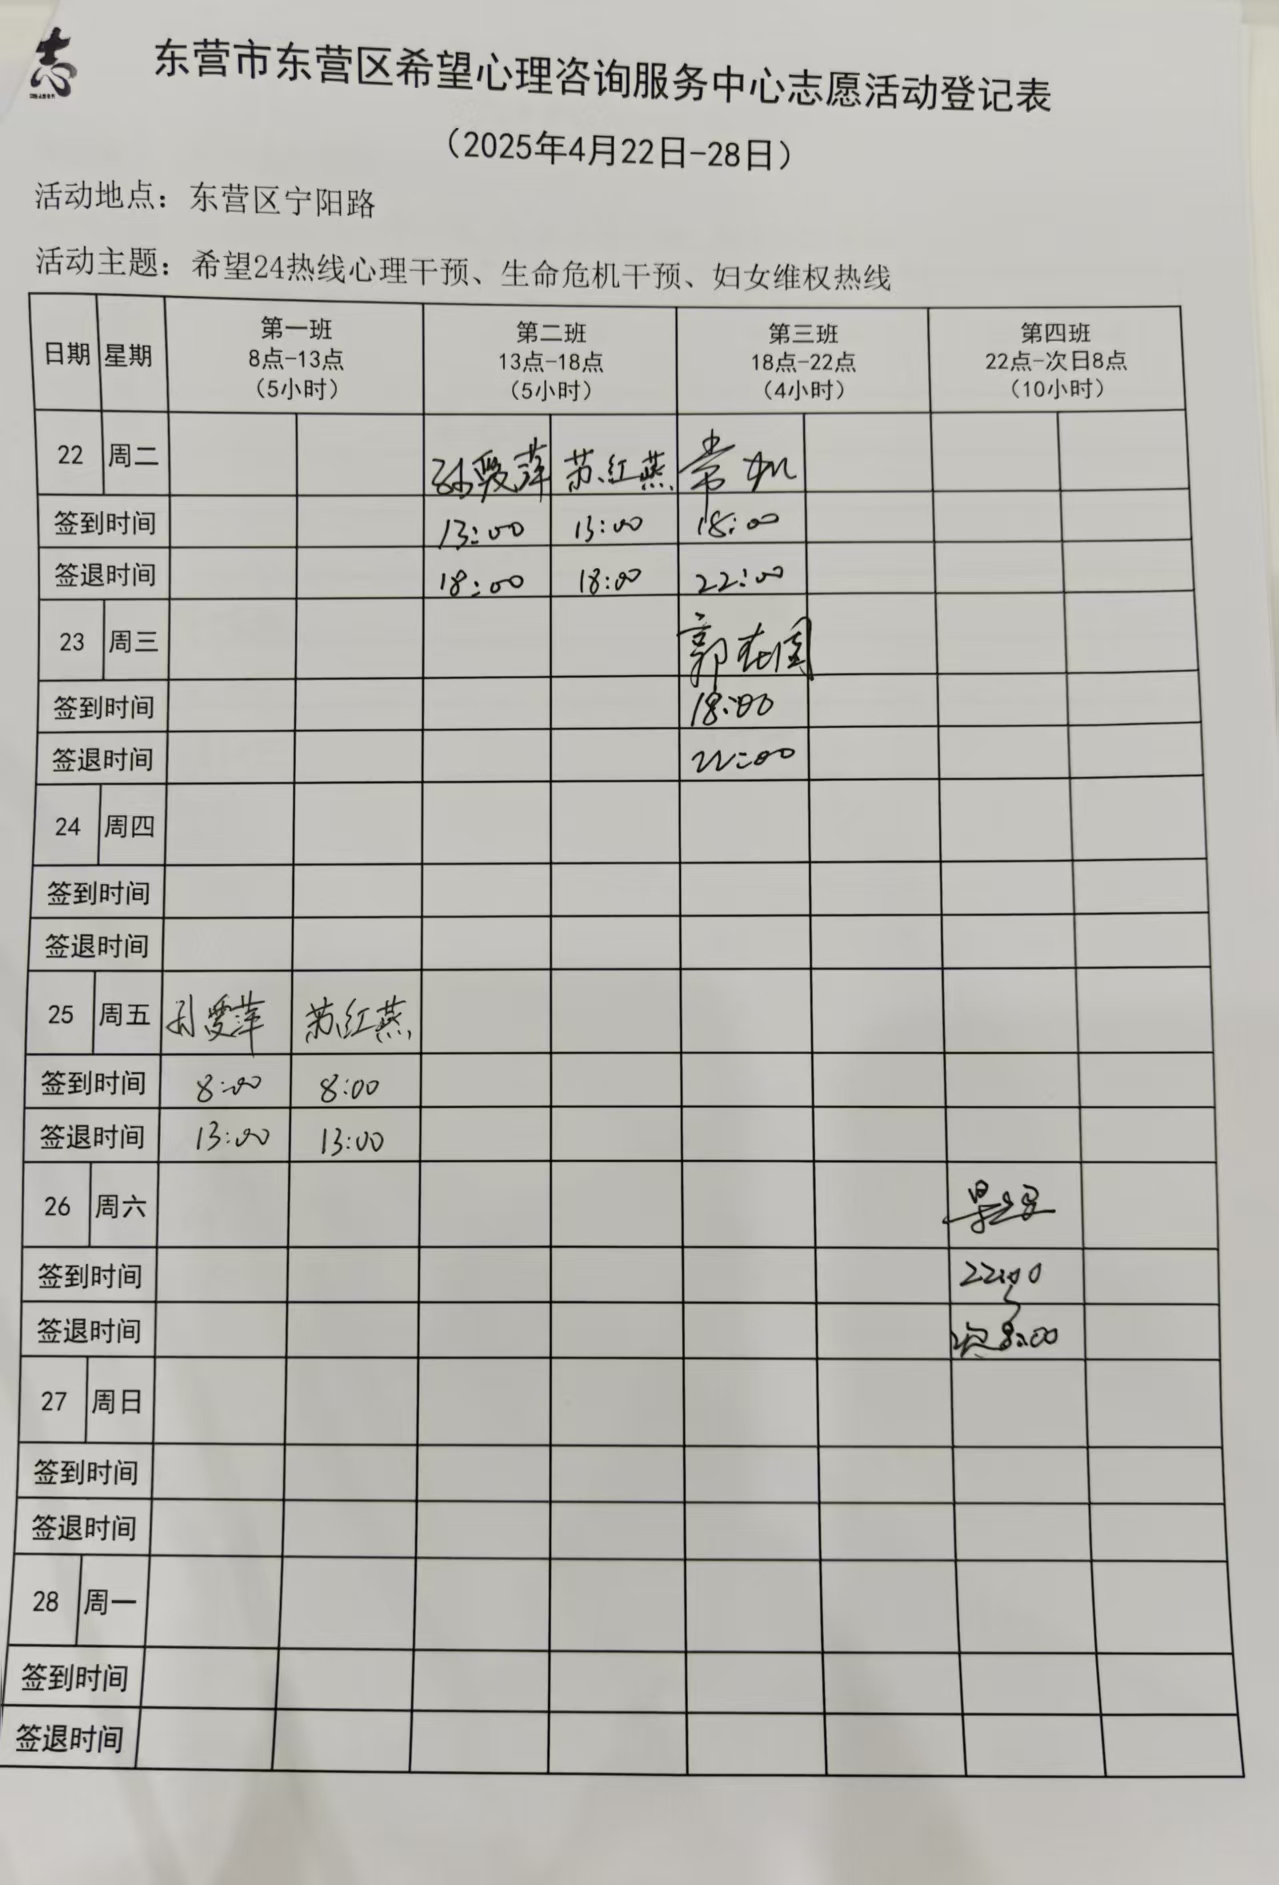 志
东营市东营区希望心理咨询服务中心志愿活动登记表
（2025年4月22日-28日）
活动地点：东营区宁阳路
活动主题：希望24热线心理干预、生命危机干预、妇女维权热线
日期 星期 第一班 8点-13点 （5小时） 第二班 13点-18点 （5小时） 第三班 18点-22点 （4小时） 第四班 22点-次日8点 （10小时）
22 周二 孙爱萍 苏红燕 常
签到时间 13:00 13:00 18:00
签退时间 18:00 18:00 22:00
23 周三 郭
签到时间 18:00
签退时间 22:00
24 周四
签到时间
签退时间
25 周五 孙爱萍 苏红燕
签到时间 8:00 8:00
签退时间 13:00 13:00
26 周六
签到时间 22:00
签退时间 次8:00
27 周日
签到时间
签退时间
28 周一
签到时间
签退时间